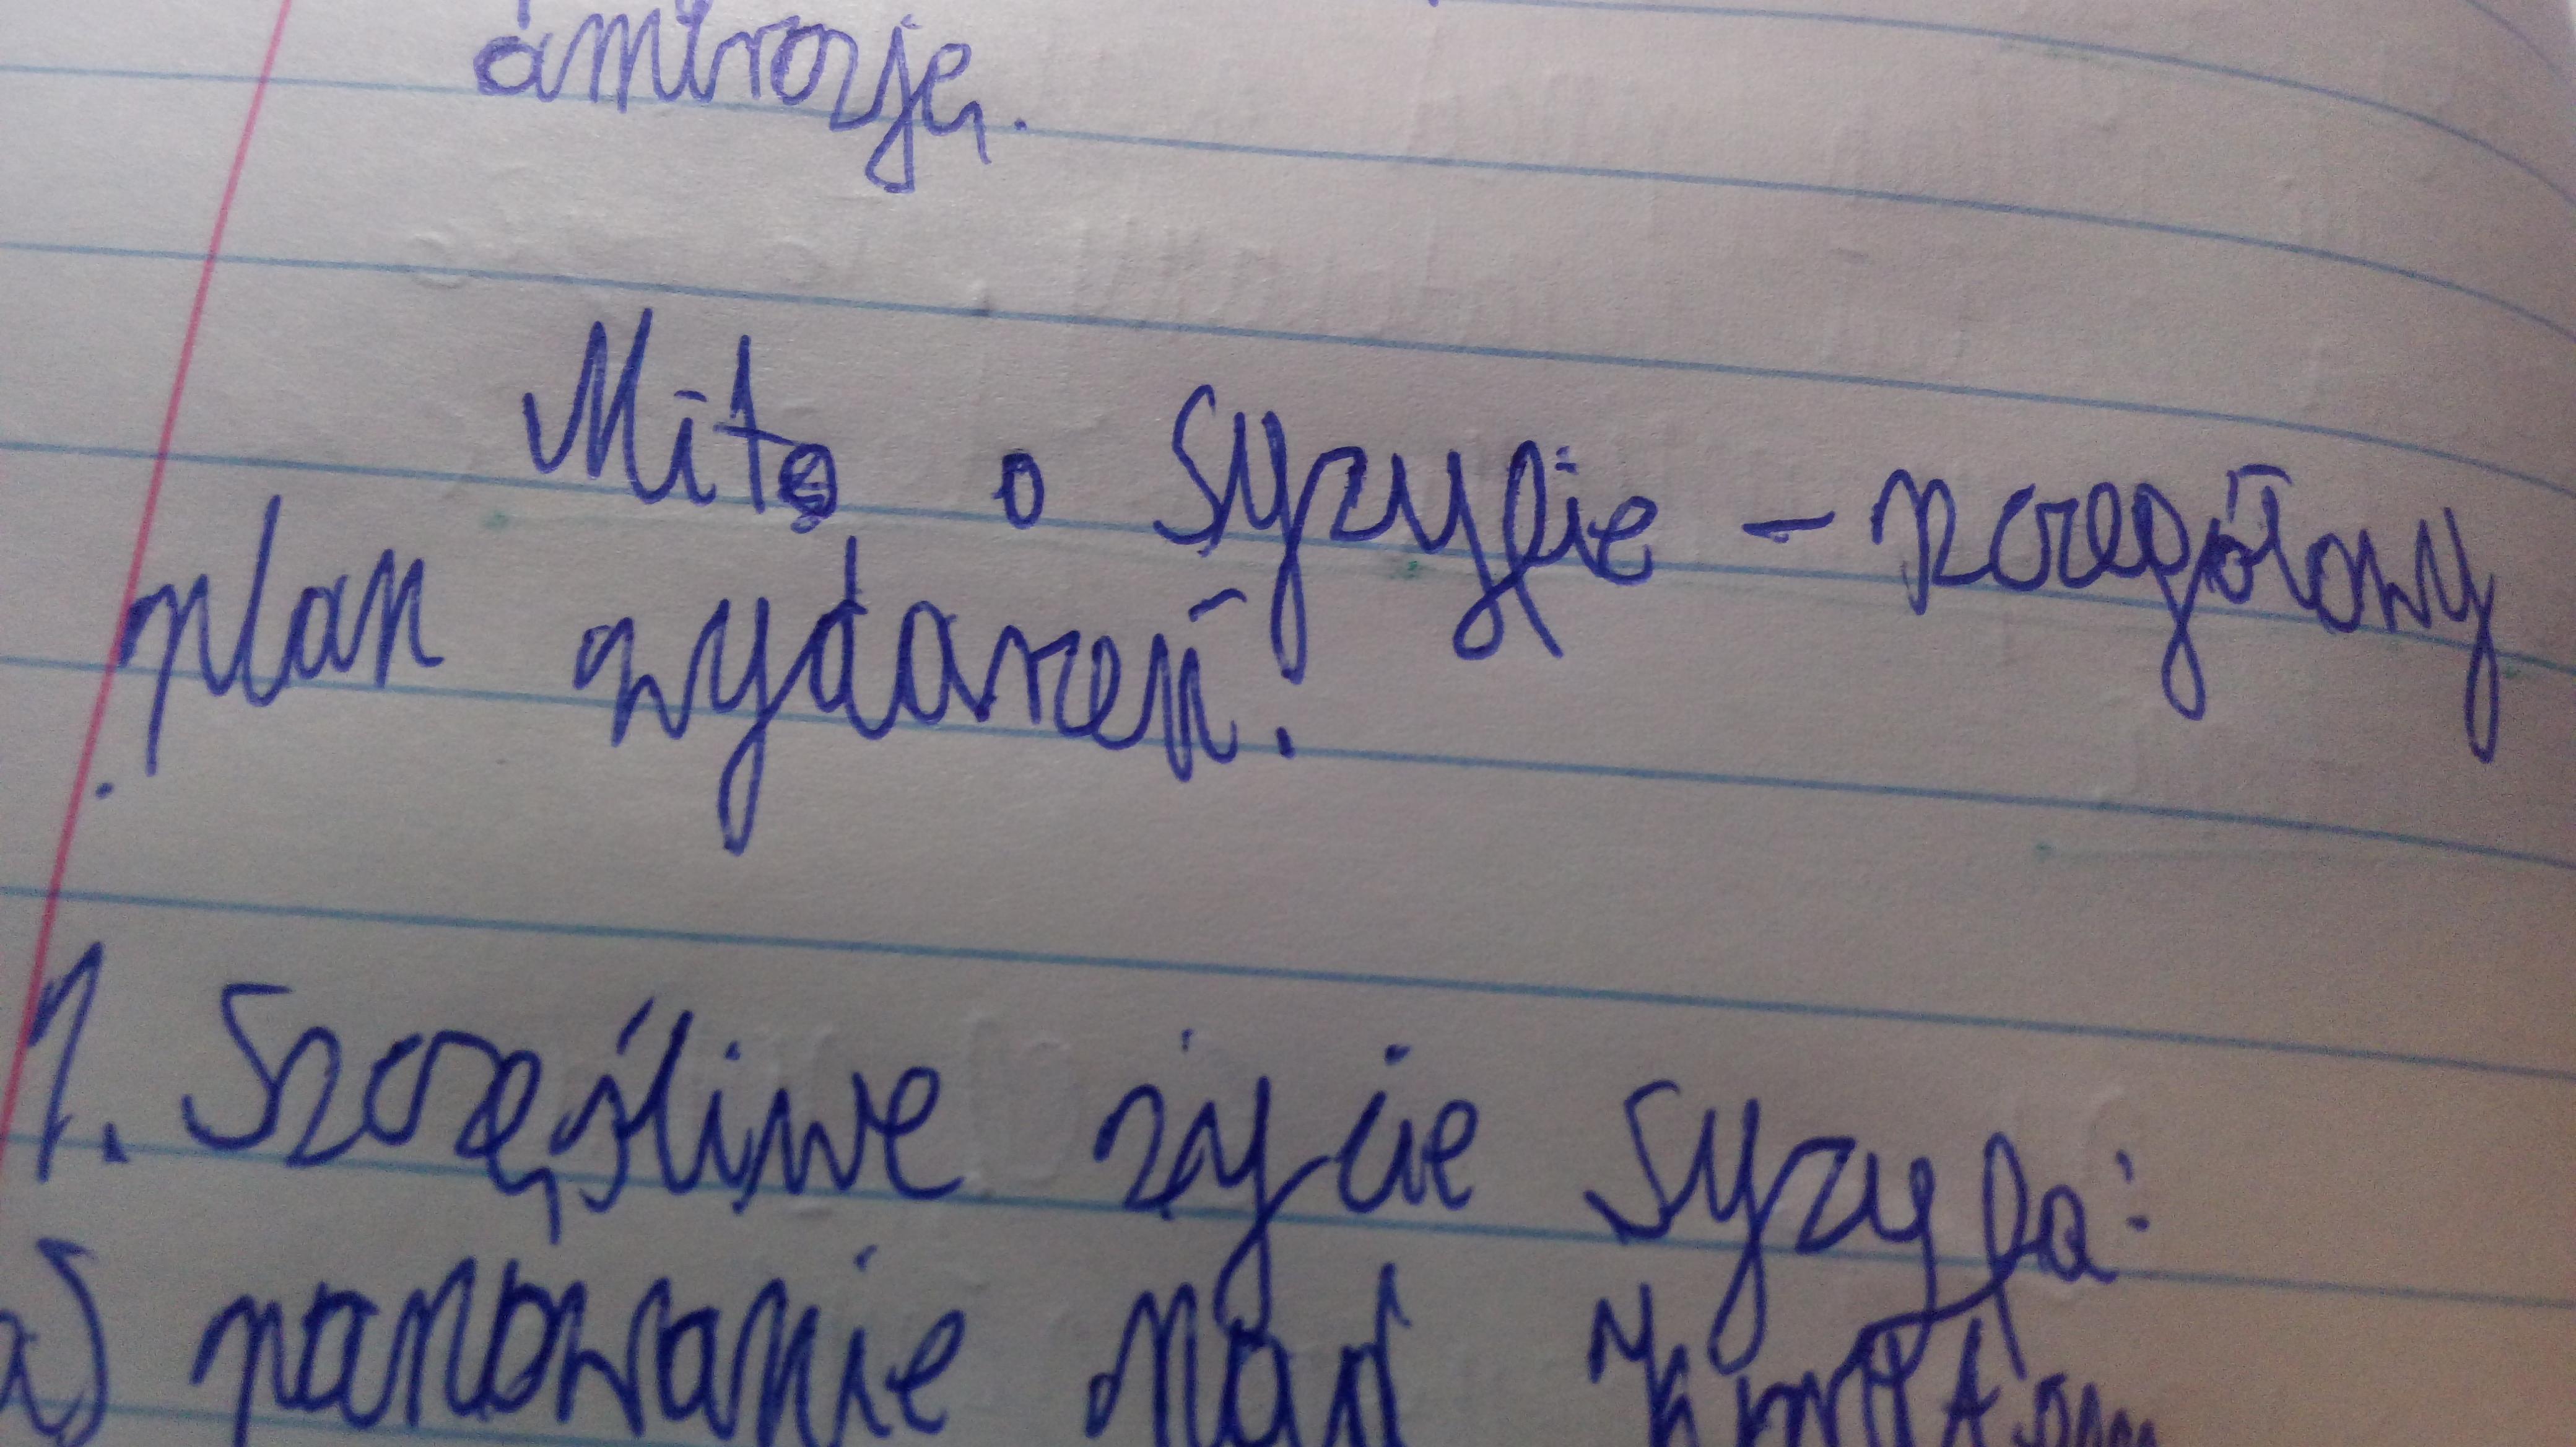 ambrozję.
Mit o Syzyfie - szczegółowy
plan wydarzeń.
1. Szczęśliwe życie Syzyfa:
a) panowanie nad